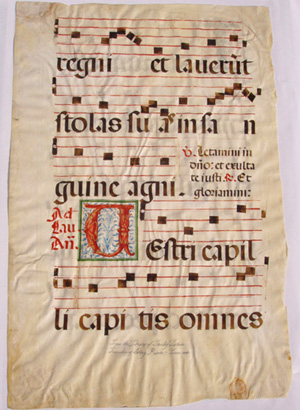 regni et laverūt
stolas suas in san
guine agni.
℣. Letamini in
dño: et exulta
te iusti. ℟. Et
gloriamini:
Ad
Lau
Añ.
Vestri capil
li capi tis omnes